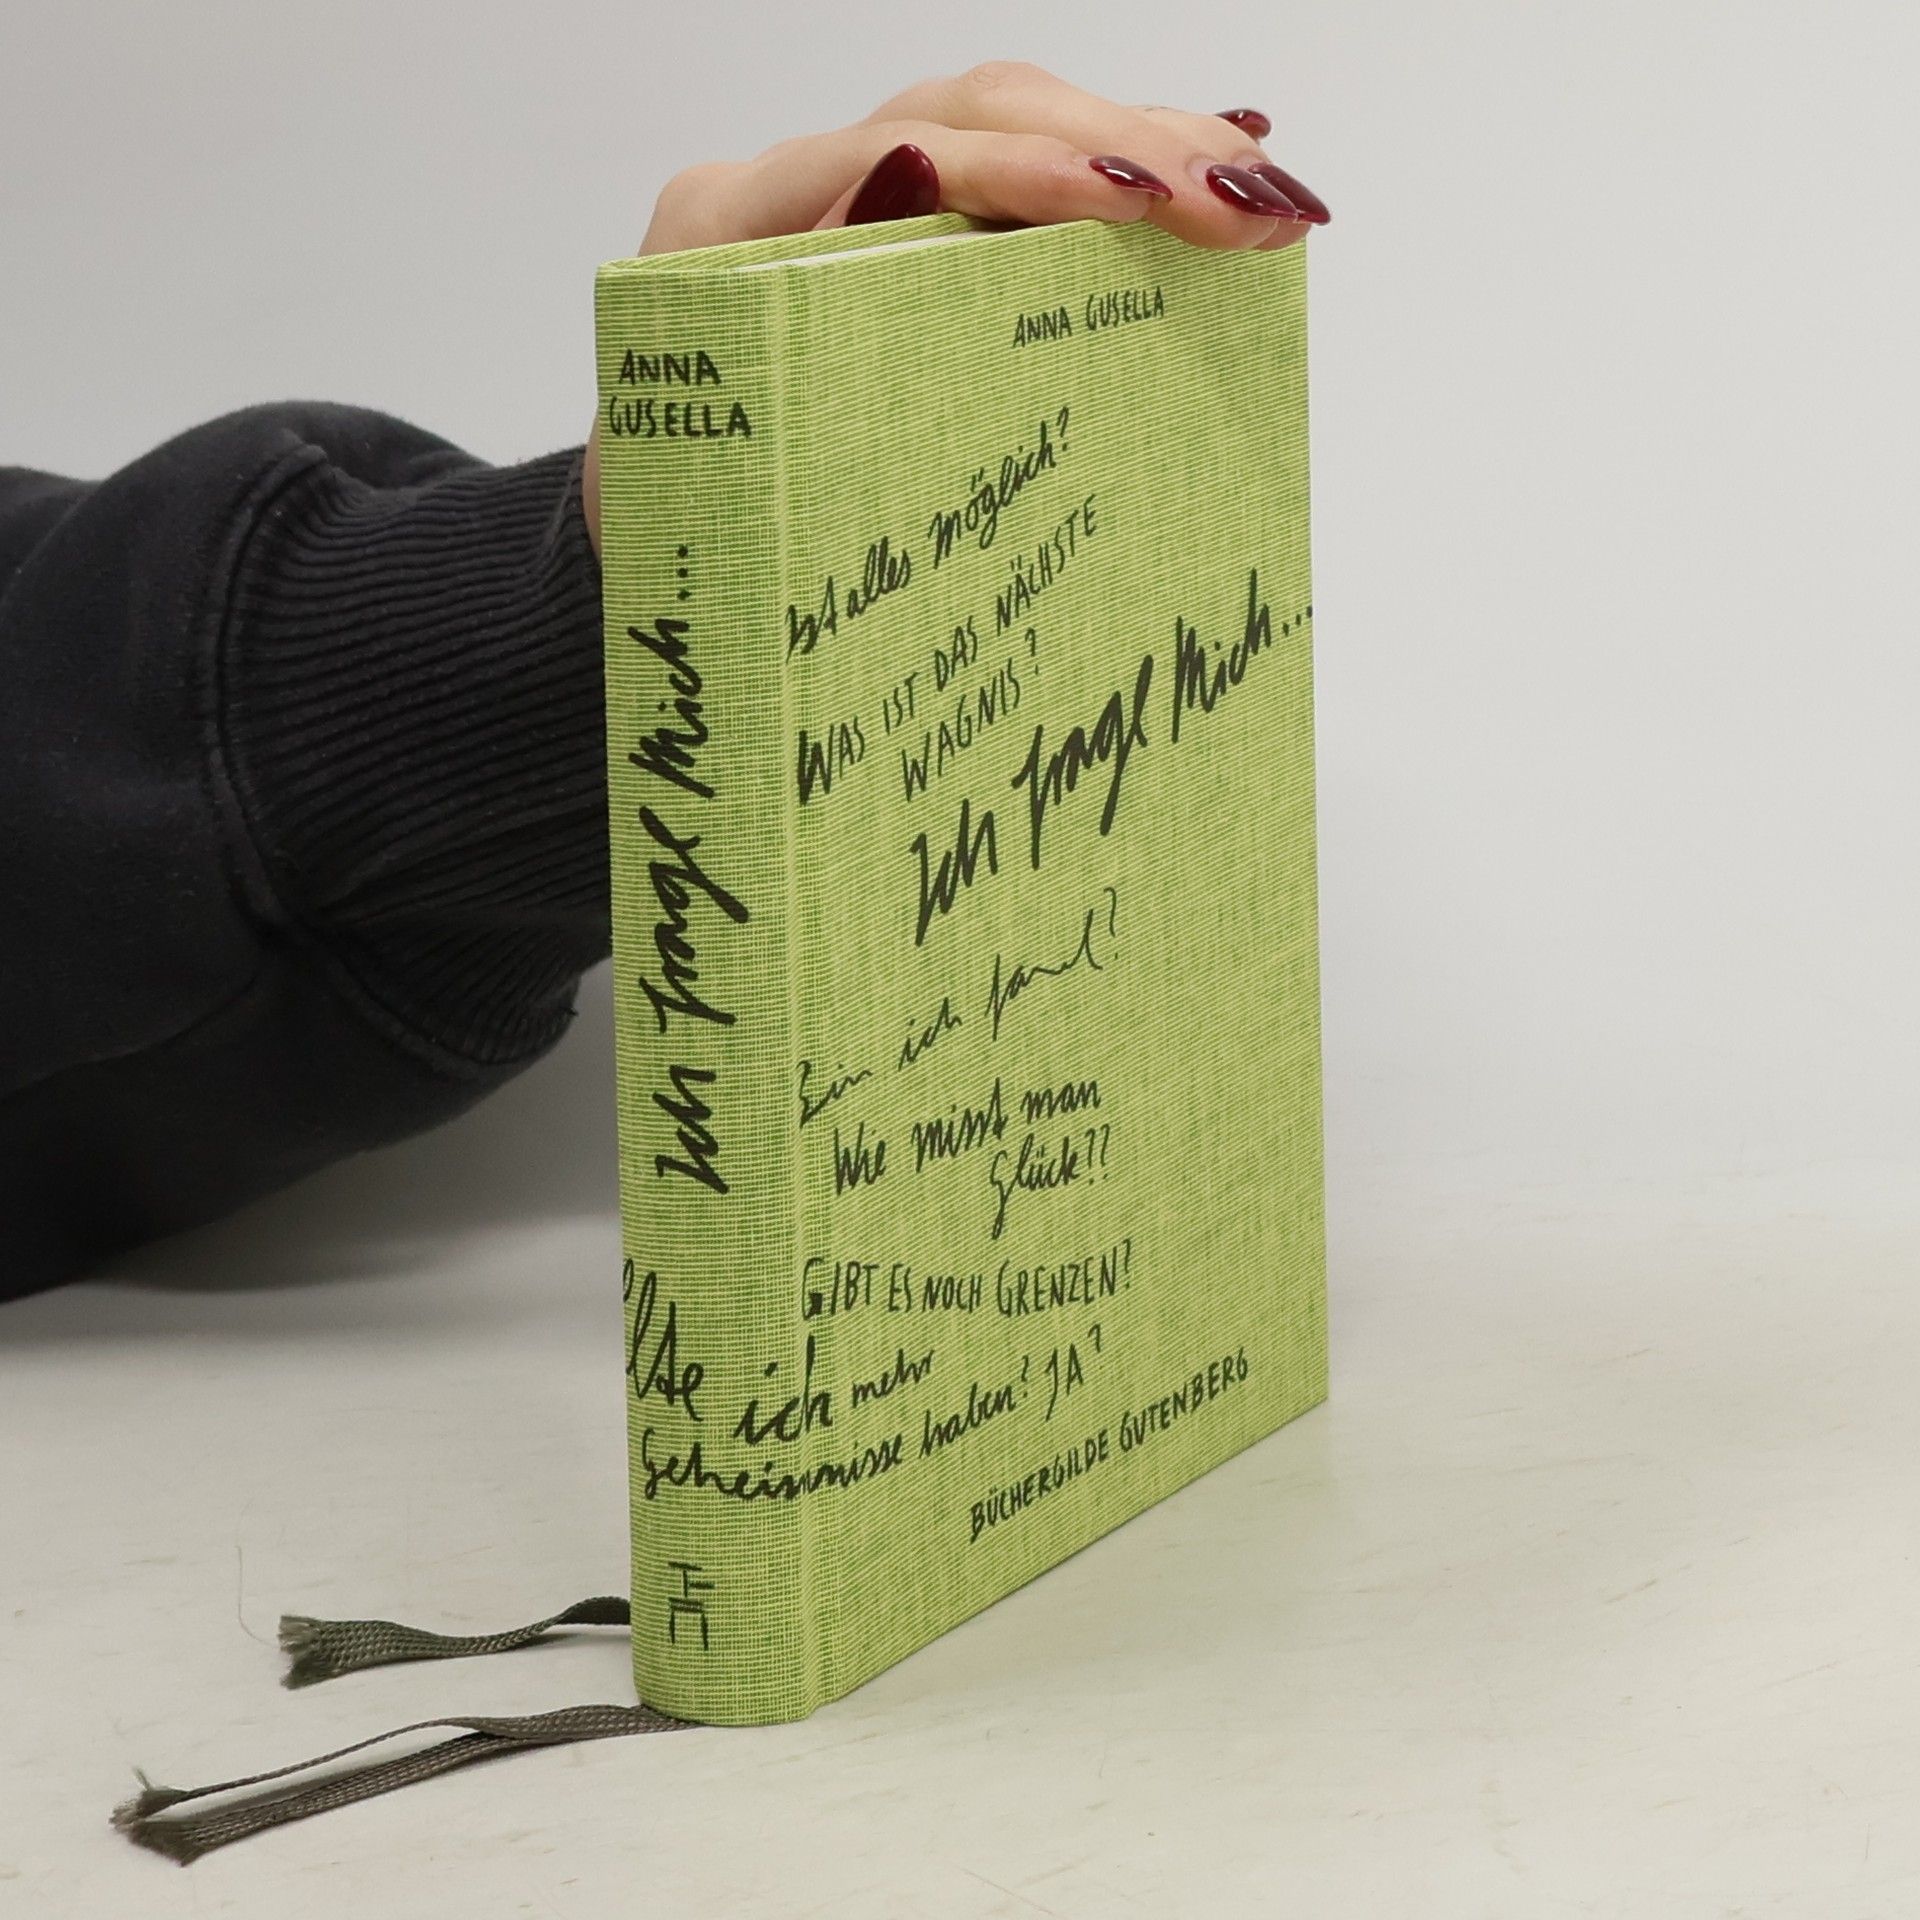 ANNA
GUSELLA
Ich frage Mich...
ANNA GUSELLA
Ist alles möglich?
WAS IST DAS NÄCHSTE
WAGNIS?
Ich frage Mich...
Bin ich fair?
Wie misst man
Glück??
GIBT ES NOCH GRENZEN?
llte ich mehr
Geheimnisse haben? JA?
BÜCHERGILDE GUTENBERG